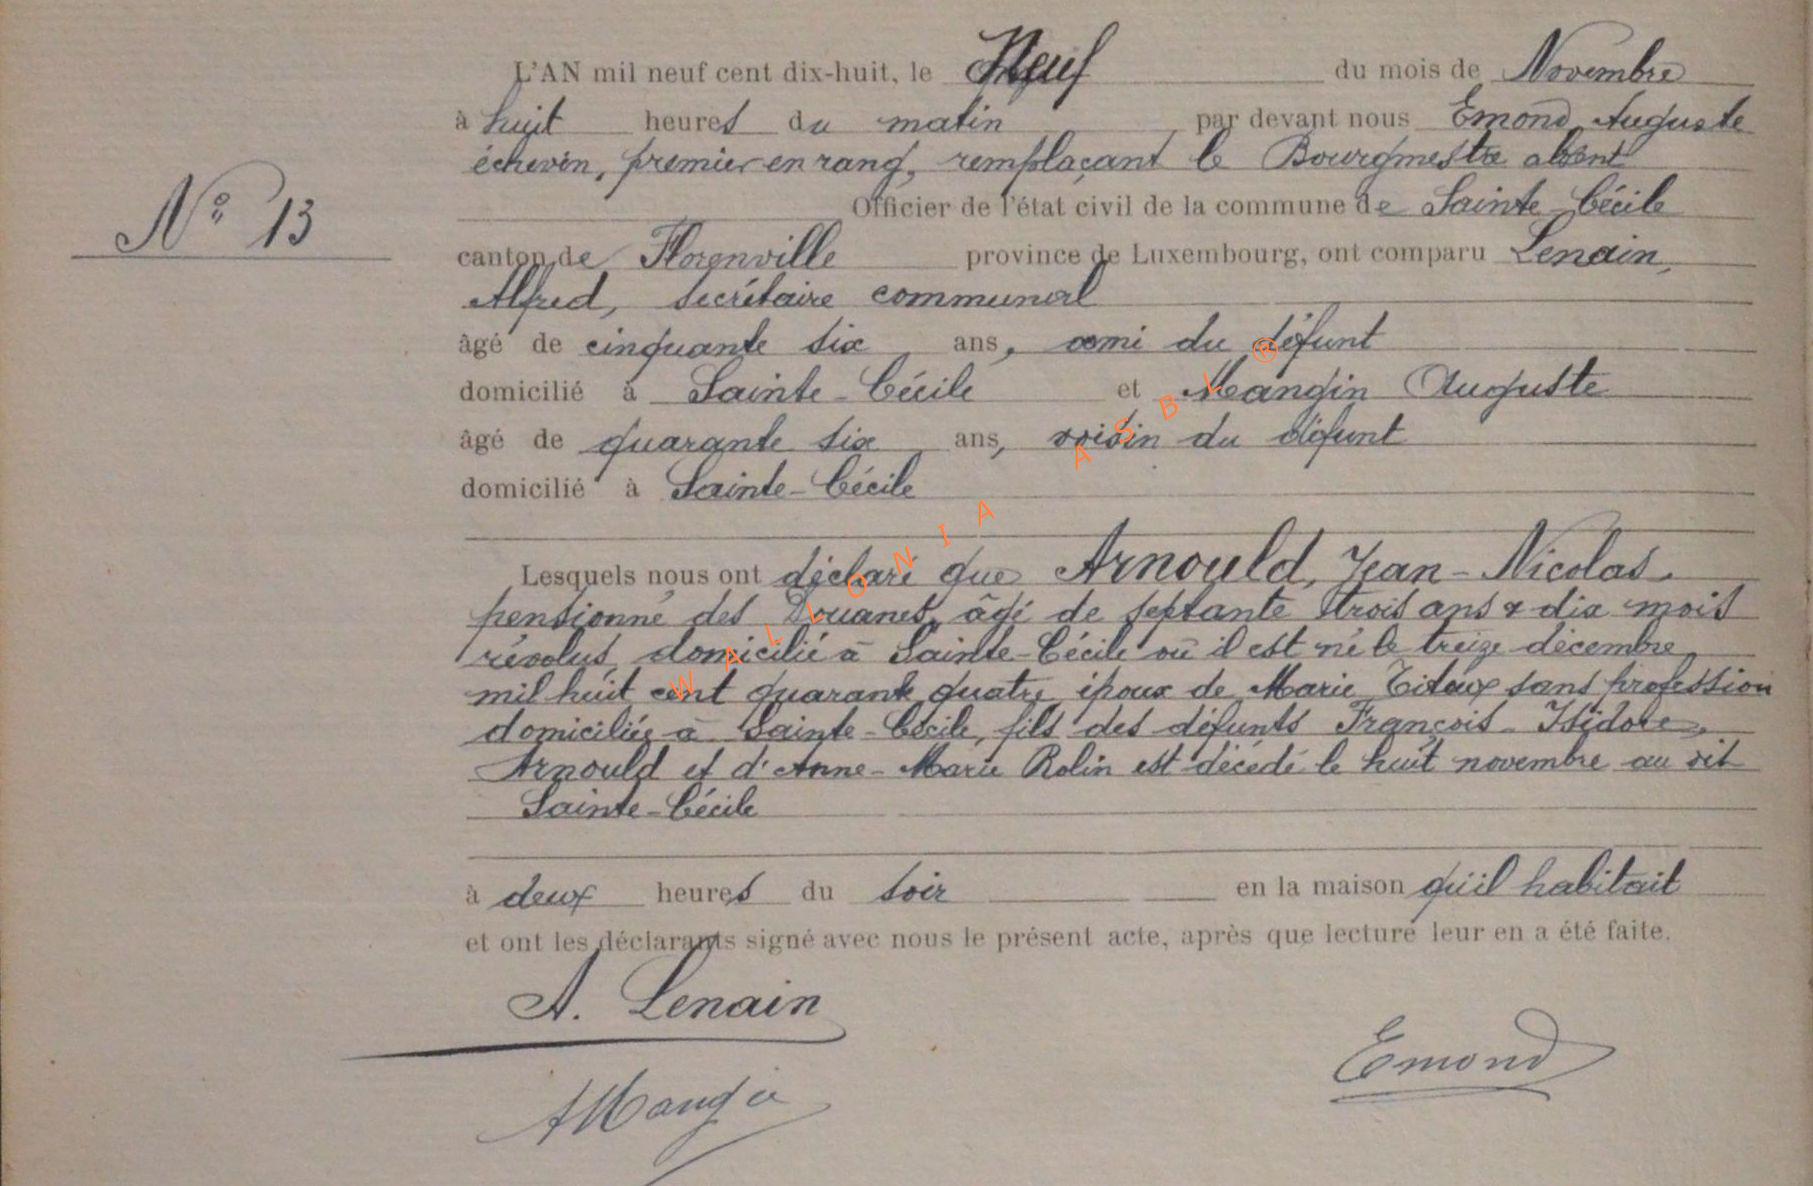 L'AN mil neuf cent dix-huit, le Neuf du mois de Novembre
à huit heures du matin par devant nous Emond, Auguste
échevin, premier en rang, remplaçant le Bourgmestre absent
Officier de l'état civil de la commune de Sainte-Cécile
N° 13
canton de Florenville province de Luxembourg, ont comparu Lenain,
Alfred, secrétaire communal
âgé de cinquante six ans, ami du défunt
domicilié à Sainte-Cécile et Mangin Auguste
âgé de quarante six ans, voisin du défunt
domicilié à Sainte-Cécile
Lesquels nous ont déclaré que Arnould, Jean-Nicolas.
pensionné des Douanes, âgé de septante trois ans & dix mois
révolus, domicilié à Sainte-Cécile où il est né le treize décembre
mil huit cent quarante quatre, époux de Marie Titeux sans profession
domiciliée à Sainte-Cécile, fils des défunts François-Isidore,
Arnould et d'Anne-Marie Rolin est décédé le huit novembre au dit
Sainte-Cécile
à deux heures du soir en la maison qu'il habitait
et ont les déclarants signé avec nous le présent acte, après que lecture leur en a été faite.
A. Lenain
Emond
AMangin
WALLONIA ASBL ®